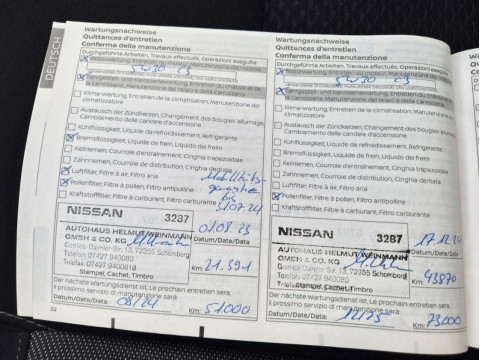 DEUTSCH
Wartungsnachweise
Quittances d'entretien
Conferma della manutenzione
Durchgeführte Arbeiten, Travaux effectués, Operazioni eseguite
5W30 C3
Klima-Wartung, Entretien de la climatisation, Manutenzione del climatizzatore
Austausch der Zündkerzen, Changement des bougies allumage,
Cambiamento delle candele d'accensione
Kühlflüssigkeit, Liquide de refroidissement, Refrigerante
Bremsflüssigkeit, Liquide de frein, Liquido dei freni
Keilriemen, Courroie d'entraînement, Cinghia trapezoidale
Zahnriemen, Courroie de distribution, Cinghia dentata
Luftfilter, Filtre à air, Filtro aria
Pollenfilter, Filtre à pollen, Filtro antipolline
Kraftstofffilter, Filtre à carburant, Filtro carburante
Mobilitäts-
garantie
bis
31.07.24
NISSAN 3287
01.08.23
Datum/Date/Data
AUTOHAUS HELMUT WEINMANN
GMBH & CO. KG
Gottlieb-Daimler-Str. 13, 72355 Schömberg
Telefon 07427 940080
Telefax 07427 940018
Km: 21.391
Stempel, Cachet, Timbro
Der nächste Wartungsdienst ist, Le prochain entretien sera,
Il prossimo servizio di manutenzione sarà:
Datum/Date/Data: 08/24 Km: 51000
32
Wartungsnachweise
Quittances d'entretien
Conferma della manutenzione
Durchgeführte Arbeiten, Travaux effectués, Operazioni eseguite
5W30 C3
Klima-Wartung, Entretien de la climatisation, Manutenzione del
climatizzatore
Austausch der Zündkerzen, Changement des bougies allumage,
Cambiamento delle candele d'accensione
Kühlflüssigkeit, Liquide de refroidissement, Refrigerante
Bremsflüssigkeit, Liquide de frein, Liquido dei freni
Keilriemen, Courroie d'entraînement, Cinghia trapezoidale
Zahnriemen, Courroie de distribution, Cinghia dentata
Luftfilter, Filtre à air, Filtro aria
Pollenfilter, Filtre à pollen, Filtro antipolline
Kraftstofffilter, Filtre à carburant, Filtro carburante
NISSAN 3287
17.12.24
Datum/Date/Data
AUTOHAUS HELMUT WEINMANN
GMBH & CO. KG
Gottlieb-Daimler-Str. 13, 72355 Schömberg
Km: 43870
Stempel, Cachet, Timbro
Der nächste Wartungsdienst ist, Le prochain entretien sera,
Il prossimo servizio di manutenzione sarà:
Datum/Date/Data: 12/25 Km: 73000